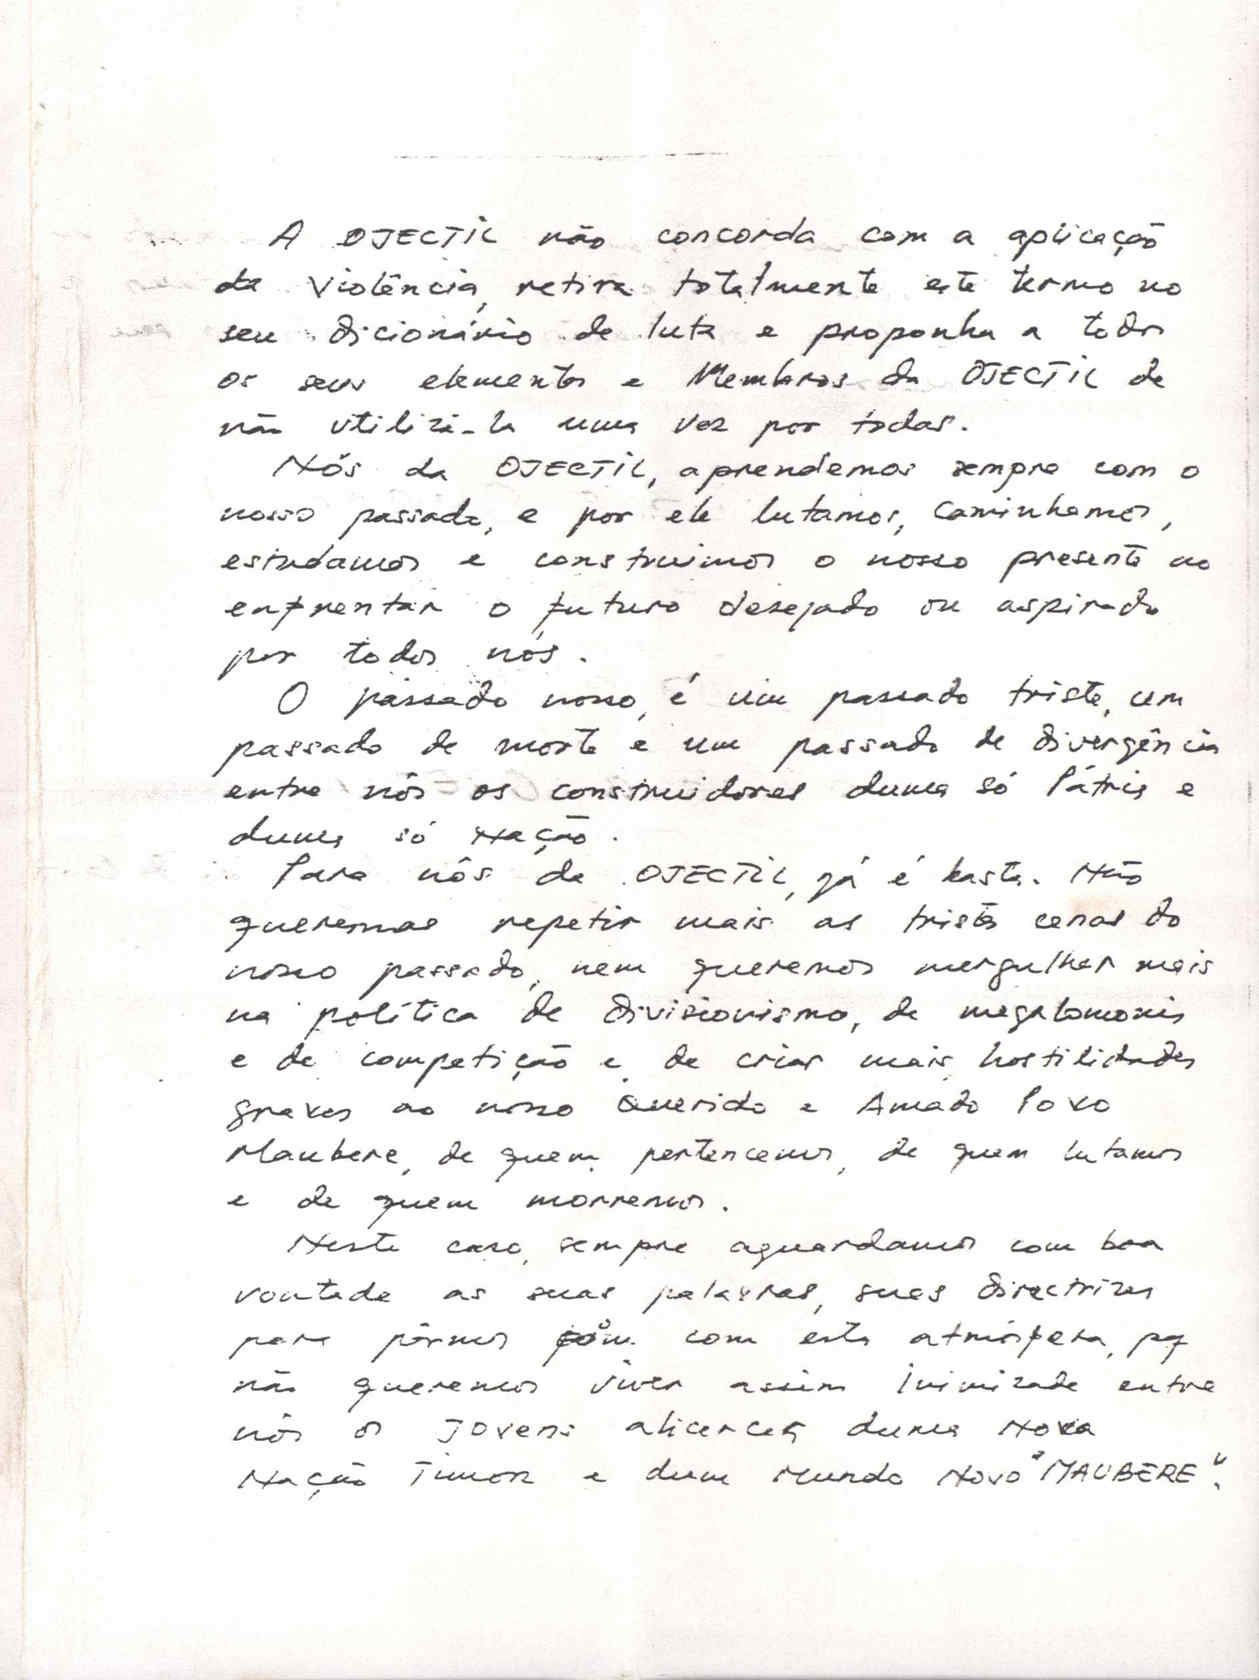 A OJECTIL não concorda com a aplicação
da violência, retira totalmente este termo no
seu dicionário de luta e proponha a todos
os seus elementos e Membros da OJECTIL de
não utilizá-la uma vez por todas.
Nós da OJECTIL, aprendemos sempre com o
nosso passado, e por ele lutamos, caminhamos,
estudamos e construimos o nosso presente ao
enfrentar o futuro desejado ou aspirado
por todos nós.
O passado nosso, é um passado triste, um
passado de morte e um passado de divergência
entre nós os construidores duma só Pátria e
duma só Nação.
Para nós da OJECTIL, já é basta. Não
queremos repetir mais as tristes cenas do
nosso passado, nem queremos mergulhar mais
na política de divisionismo, de megalomonia
e de competição e de criar mais hostilidades
graves ao nosso Querido e Amado Povo
Maubere, de quem pertencemos, de quem lutamos
e de quem morremos.
Neste caso, sempre aguardamos com boa
vontade as suas palavras, suas directrizes
para pôrmos com esta atmósfera, pq
não queremos viver assim inimizade entre
nós os Jovens alicerces duma Nova
Nação Timor e dum Mundo Novo "MAUBERE".